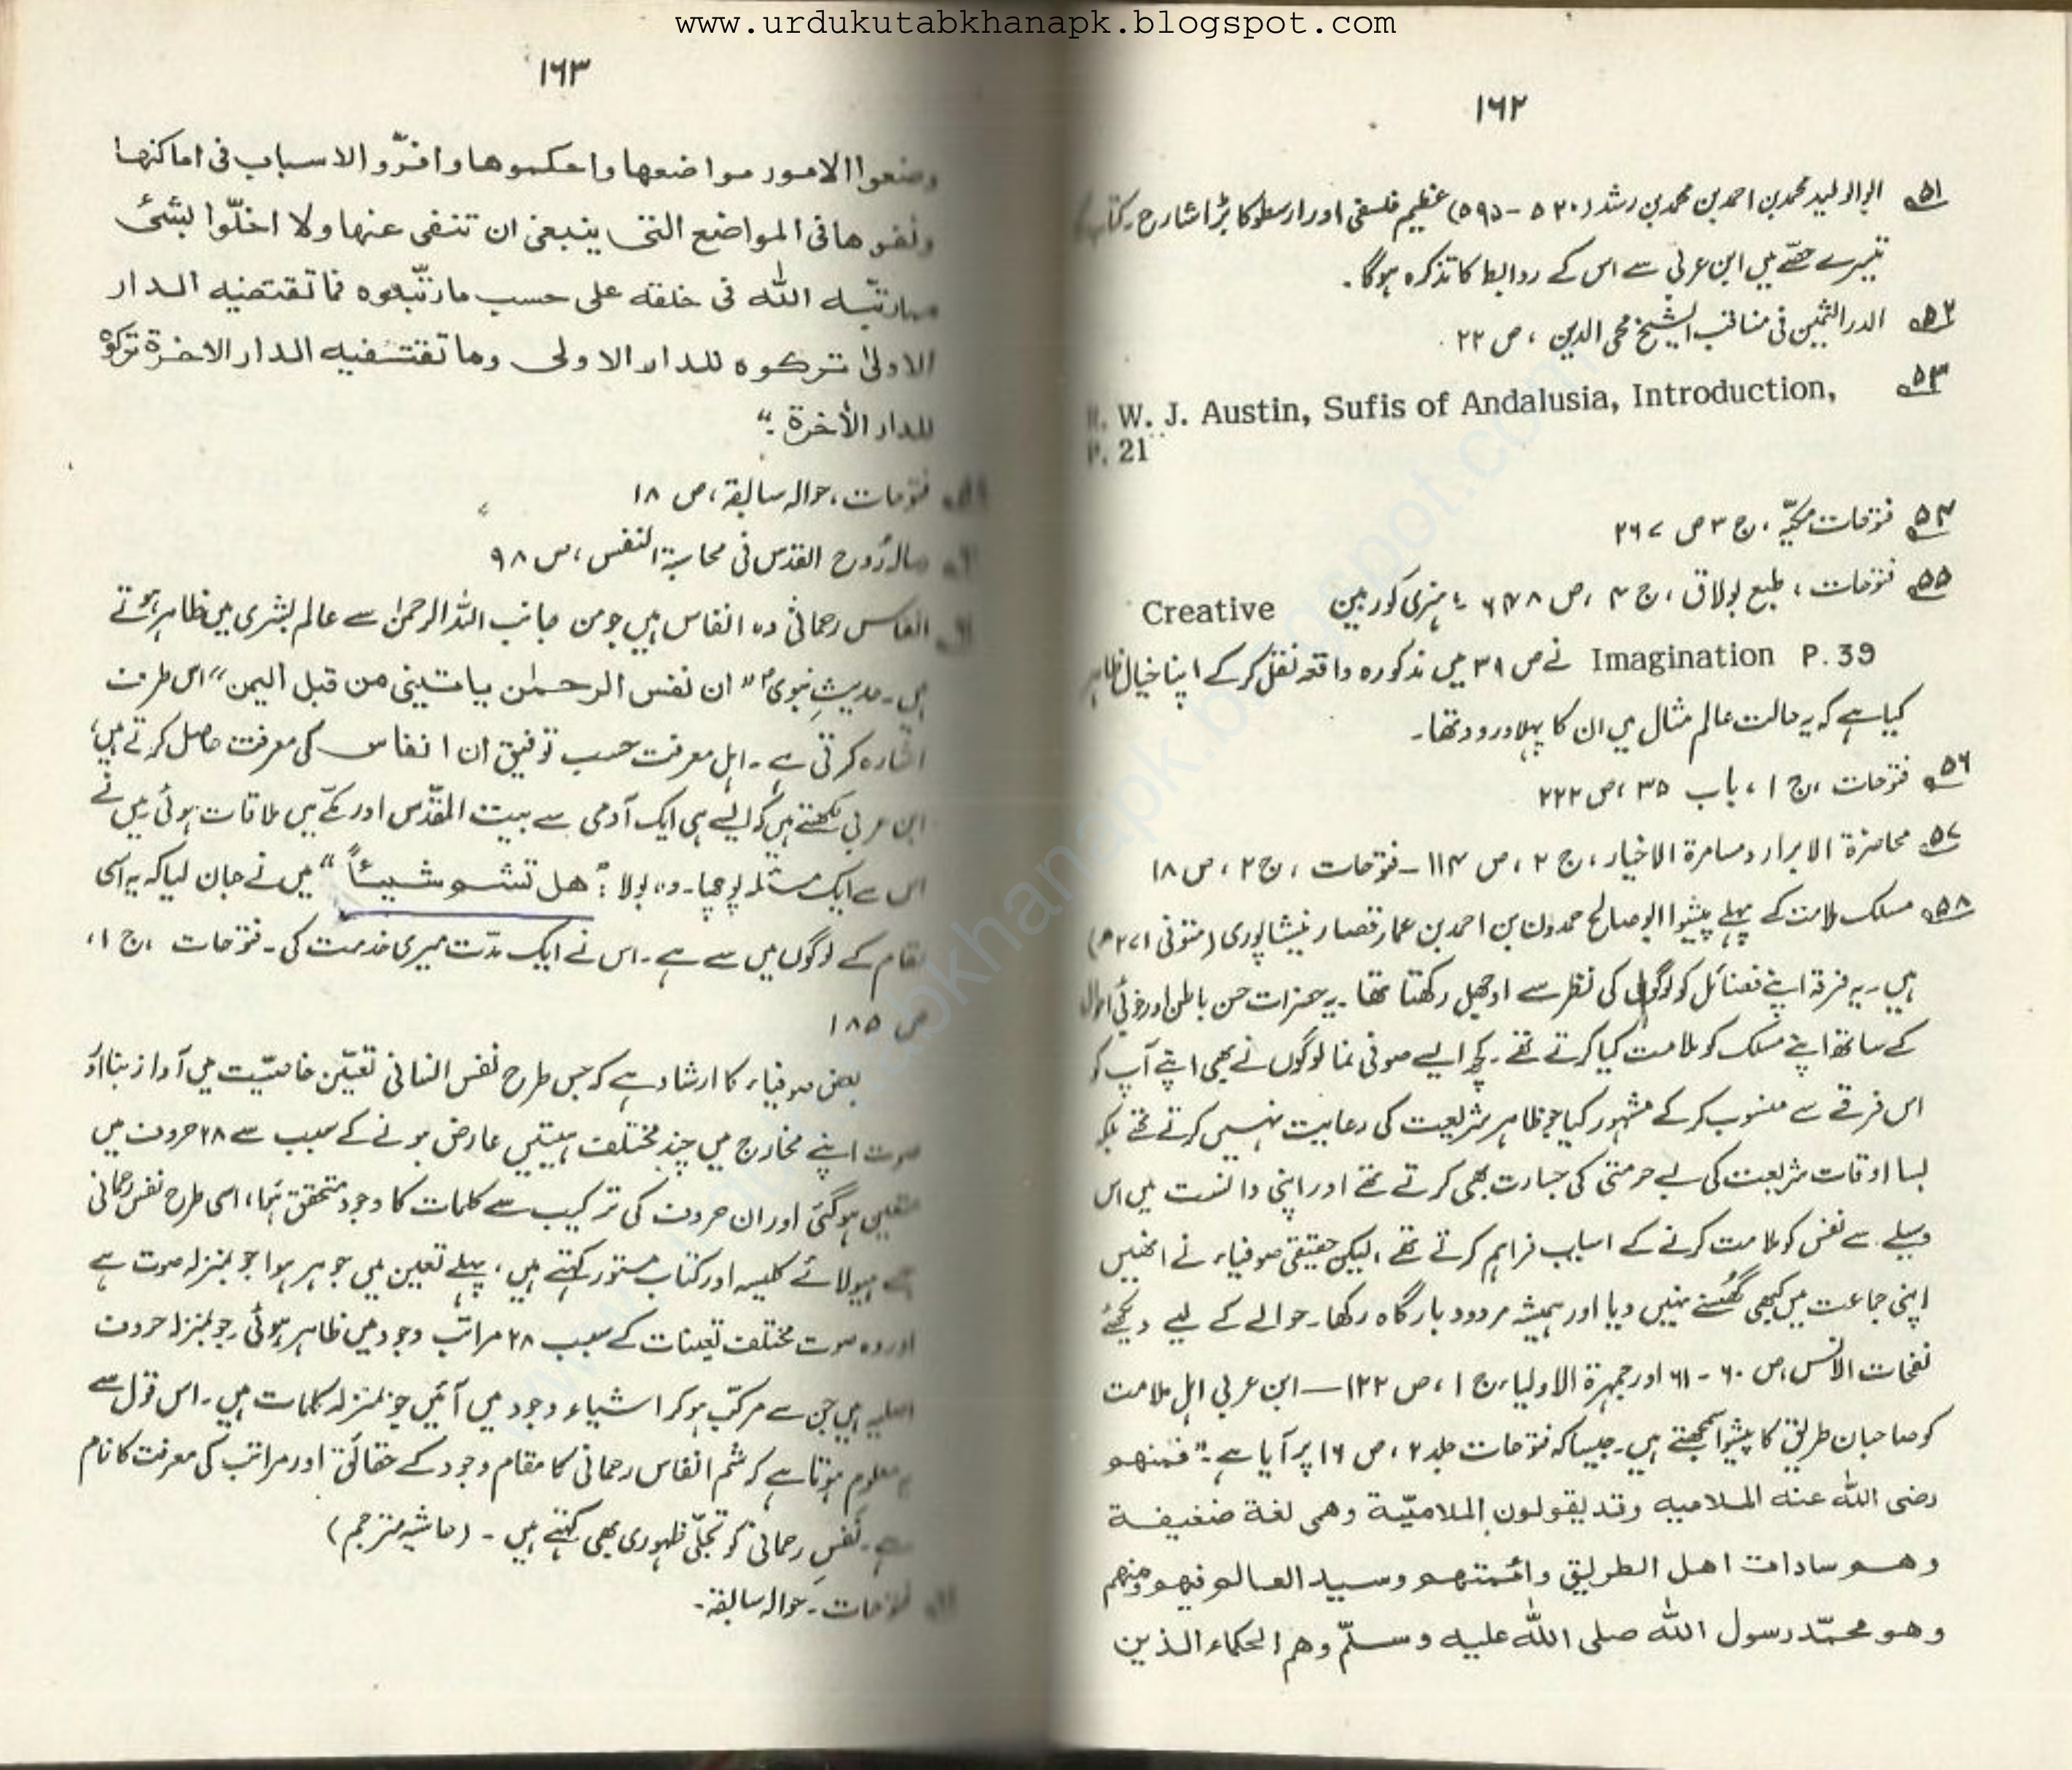 www.urdukutabkhanapk.blogspot.com
۱۶۲
۵۱ ابوالولید محمد بن احمد بن محمد بن رشد (۵۲۰ – ۵۹۵) عظیم فلسفی اور ارسطو کا بڑا شارح۔ کتاب کے
تیسرے حصّے میں ابن عربی سے اس کے روابط کا تذکرہ ہوگا۔
۵۲ الدر الثمین فی مناقب الشیخ محی الدین ، ص ۲۲
۵۳ R. W. J. Austin, Sufis of Andalusia, Introduction,
P. 21
۵۴ فتوحات مکیّہ ، ج ۳ ص ۲۶۷
۵۵ فتوحات ، طبع بولاق ، ج ۴ ، ص ہنری کوربین Creative
Imagination P. 39 نے ص ۳۹ میں مذکورہ واقعہ نقل کر کے اپنا خیال ظاہر
کیا ہے کہ یہ حالت عالم مثال میں ان کا پہلا ورود تھا۔
۵۶ فتوحات ، ج ۱ ، باب ۳۵ ، ص ۲۲۲
۵۷ محاضرة الابرار و مسامرة الاخیار ، ج ۲ ، ص ۱۱۴ – فتوحات ، ج ۲ ، ص ۱۸
۵۸ مسلک ملامت کے پہلے پیشوا ابو صالح حمدون بن احمد بن عمار قصار نیشاپوری (متوفی ۲۷۱ھ)
ہیں۔ یہ فرقہ اپنے فضائل کو لوگوں کی نظر سے اوجھل رکھتا تھا۔ یہ حضرات حسن باطن اور
کے ساتھ اپنے مسلک کو ملامت کیا کرتے تھے۔ کچھ ایسے صوفی نما لوگوں نے بھی اپنے آپ کو
اس فرقے سے منسوب کر کے مشہور کیا جو ظاہر شریعت کی رعایت نہیں کرتے تھے بلکہ
بسا اوقات شریعت کی بے حرمتی کی جسارت بھی کرتے تھے اور اپنی دانست میں اس
وسیلے سے نفس کو ملامت کرنے کے اسباب فراہم کرتے تھے ، لیکن حقیقی صوفیاء نے انھیں
اپنی جماعت میں کبھی گھسنے نہیں دیا اور ہمیشہ مردود بارگاہ رکھا۔ حوالے کے لیے دیکھئے
نفحات الانس ، ص ۶۰ – ۶۱ اور جمہرة الاولیاء ، ج ۱ ، ص ۱۲۲ – ابن عربی اہل ملامت
کو صاحبان طریق کا پیشوا سمجھتے ہیں۔ جیسا کہ فتوحات جلد ۲ ، ص ۱۶ پر آیا ہے۔ "فمنهم
رضی اللہ عنہ الملامیہ وقد یقولون الملامیّة وھی لغة ضعیفة
وهم سادات اهل الطریق وائمتهم وسید العالم فیهم ومنهم
وهو محمّد رسول اللہ صلی اللہ علیہ وسلّم وهم الحکماء الذین
۱۶۳
وضعوا الامور مواضعها واحکموها واقرّوا الاسباب فی اماکنها
ونفوها فی المواضع التی ینبغی ان تنفی عنها ولا اخلّوا بشئ
مما رتّبہ اللہ فی خلقہ علی حسب ما رتّبوه فما تقتضیه الدار
الاولیٰ ترکوه للدار الاولی وما تقتضیه الدار الاخرة ترکوه
للدار الأخرة۔"
فتوحات ، حوالہ سابقہ ، ص ۱۸
رسالہ رُوح القدس فی محاسبة النفس ، ص ۹۸
انفاس رحمانی وہ انفاس ہیں جو من جانب اللہ الرحمٰن سے عالم بشری میں ظاہر ہوتے
ہیں۔ حدیثِ نبویؐ "ان نفس الرحمٰن یاتینی من قبل الیمن" اس طرف
اشارہ کرتی ہے۔ اہل معرفت حسب توفیق ان انفاس کی معرفت حاصل کرتے ہیں،
ابن عربی لکھتے ہیں کہ ایسے ہی ایک آدمی سے بیت المقدّس اور مکّے میں ملاقات ہوئی میں نے
اس سے ایک مسئلہ پوچھا۔ وہ بولا : "هل تشم شیئاً" میں نے جان لیا کہ یہ اسی
مقام کے لوگوں میں سے ہے۔ اس نے ایک مدّت میری خدمت کی۔ فتوحات ، ج ۱ ،
ص ۱۸۵
بعض صوفیاء کا ارشاد ہے کہ جس طرح نفس انسانی تعیّن خاصیّت میں آواز بنا اور
صوت اپنے مخارج میں چند مختلف ہیئتیں عارض ہونے کے سبب سے ۲۸ حروف میں
متعین ہوگئی اور ان حروف کی ترکیب سے کلمات کا وجود متحقق ہُوا ، اسی طرح نفس رحمانی
جسے ہیولائے کلیہ اور کتاب مستور کہتے ہیں ، پہلے تعین میں جوہر ہوا جو بمنزلہ صوت ہے
اور وہ صوت مختلف تعینات کے سبب ۲۸ مراتب وجود میں ظاہر ہوئی۔ جو بمنزلہ حروف
اصلیہ ہیں جن سے مرکّب ہو کر اشیاء وجود میں آئیں جو بمنزلہ کلمات ہیں۔ اس قول سے
یہ معلوم ہوتا ہے کہ شم انفاس رحمانی کا مقام وجود کے حقائق اور مراتب کی معرفت کا نام
ہے۔ نفسِ رحمانی کو تجلّی ظہوری بھی کہتے ہیں۔ (حاشیہ مترجم)
فتوحات۔ حوالہ سابقہ۔